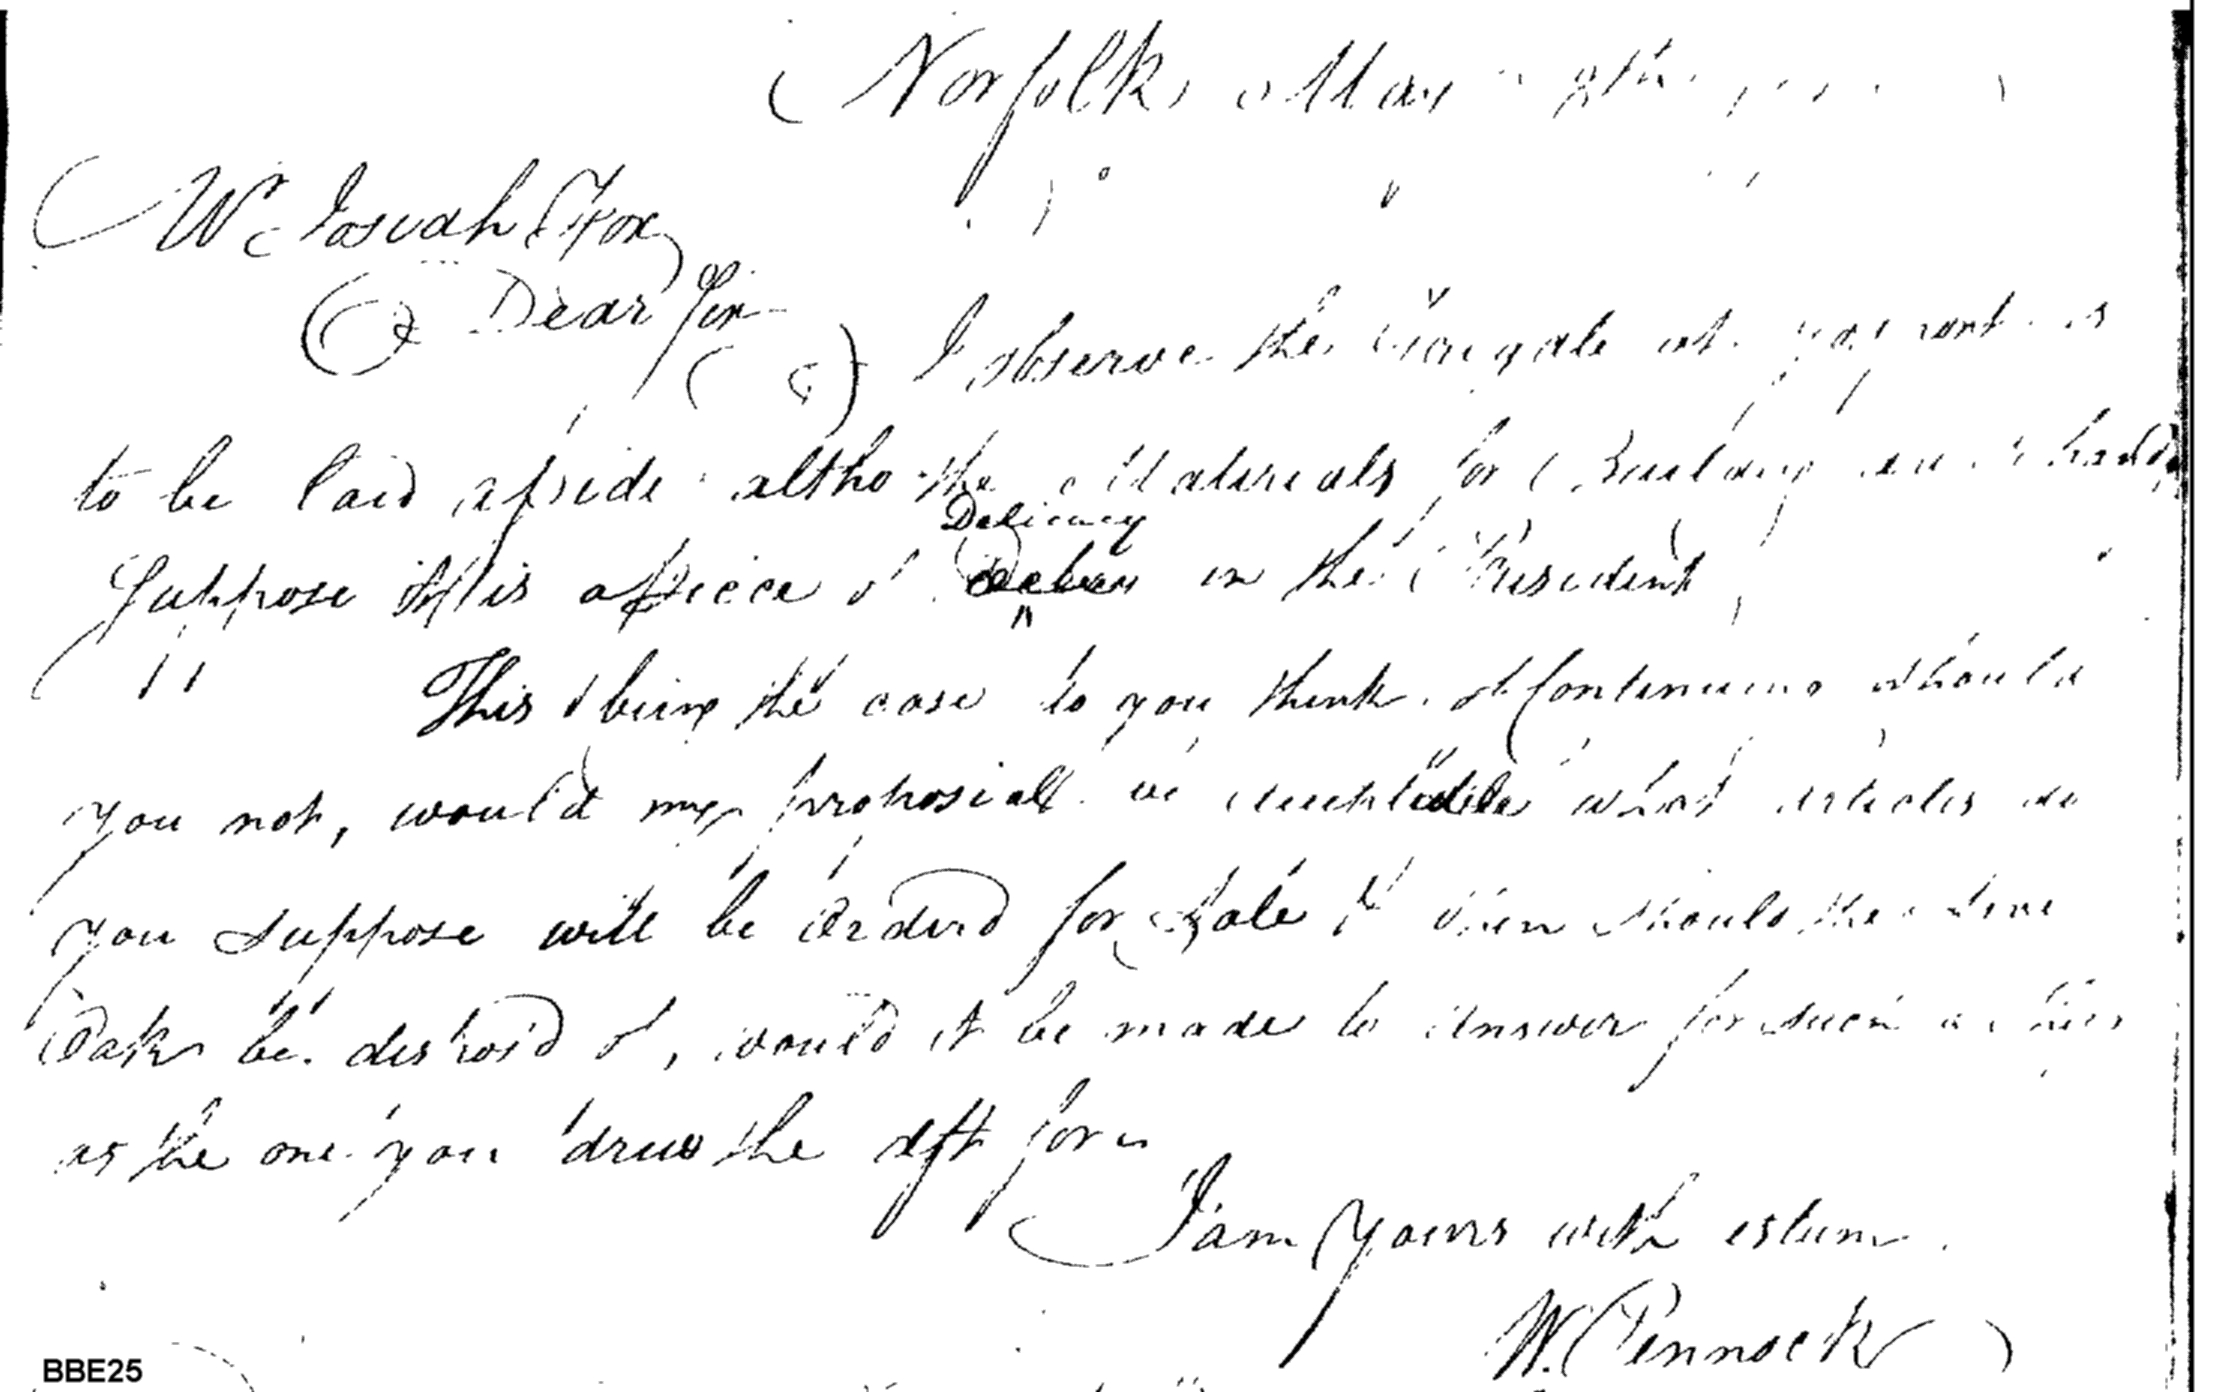 Norfolk May
Mr Josiah Fox
Dear Sir
I observe the frigate at
to be laid aside altho the Materials for Building
Suppose it is a piece of Delicacy in the President
This being the case do you think of Continuing should
you not, would my proposiall be what articles do
you suppose will be Orderd for Sale & then should the Live
Oak be disposd of, would it be made to Answer for such a
as the one you drew the dft for
I am Yours with esteem
W. Pennock
BBE25